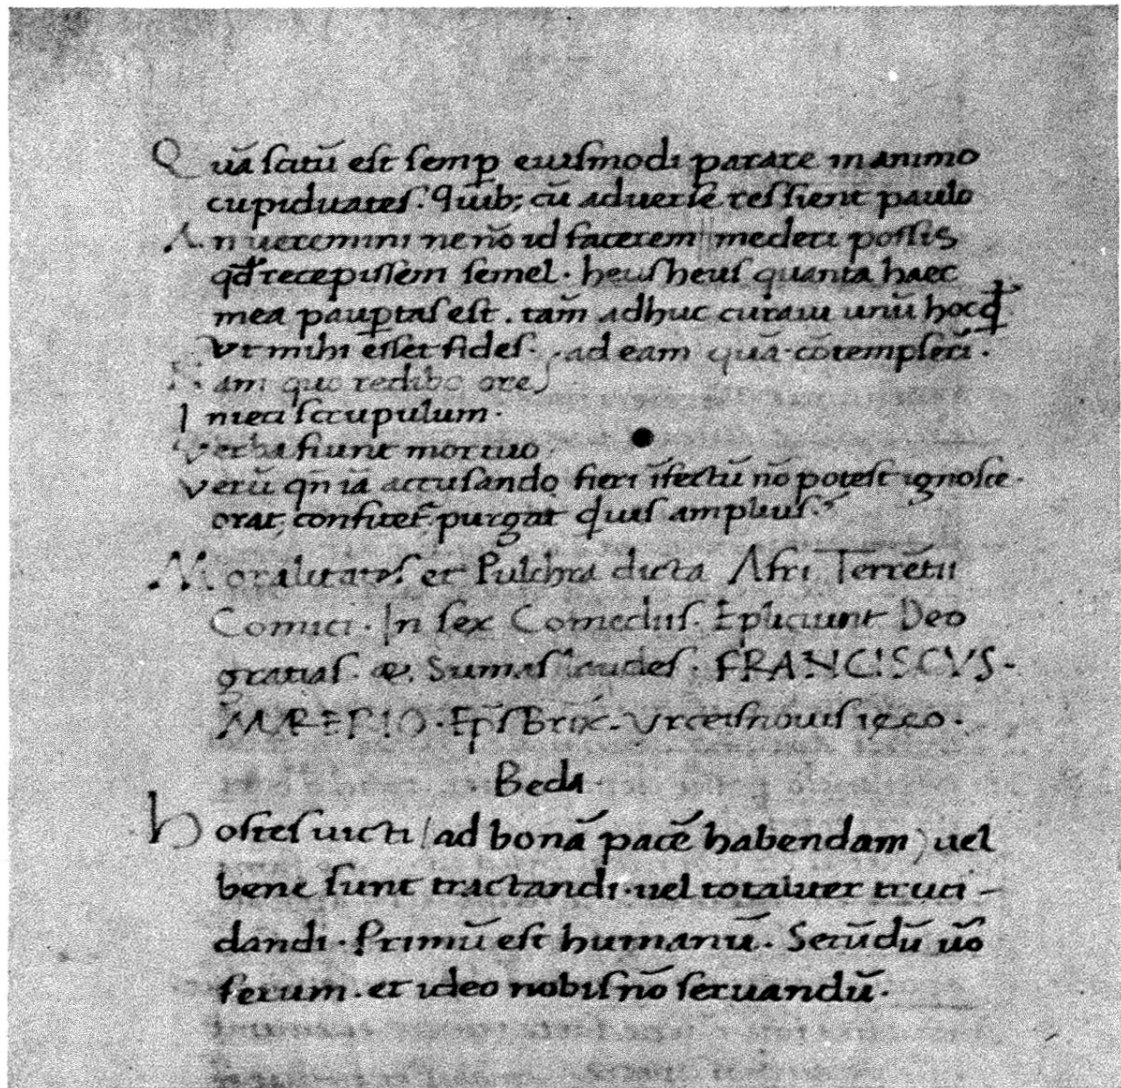 Quā scitū est semp eiusmodi parare in animo
cupiditates. quib; cū aduerse res sient paulo
An ueremini ne nō id facerem || mederi possis
qđ recepissem semel. heus heus quanta haec
mea paup̱tas est. tam̄ adhuc curaui unū hoc qđ
Vt mihi esset fides. ad eam quā contempseri.
Nam quo redibo ore
Inieci scrupulum.
Verba fiunt mortuo.
Verū qn̄ iā accusando fieri īfectū nō potest ignosce.
orat, confitet; purgat quis amplius.
Moralitates et Pulchra dicta Afri Terrētii
Comici. In sex Comediis. Epliciunt Deo
gratias. &. Sumas laudes. FRANCISCVS.
MARERIO. Ep̄s Brix. Vrceis nouis 1420.
Beda.
Hostes uicti (ad bonā pacē habendam) uel
bene sunt tractandi. uel totaliter truci-
dandi. Primū est humanū. Secūdū uō
ferum. et ideo nobis nō seruandū.